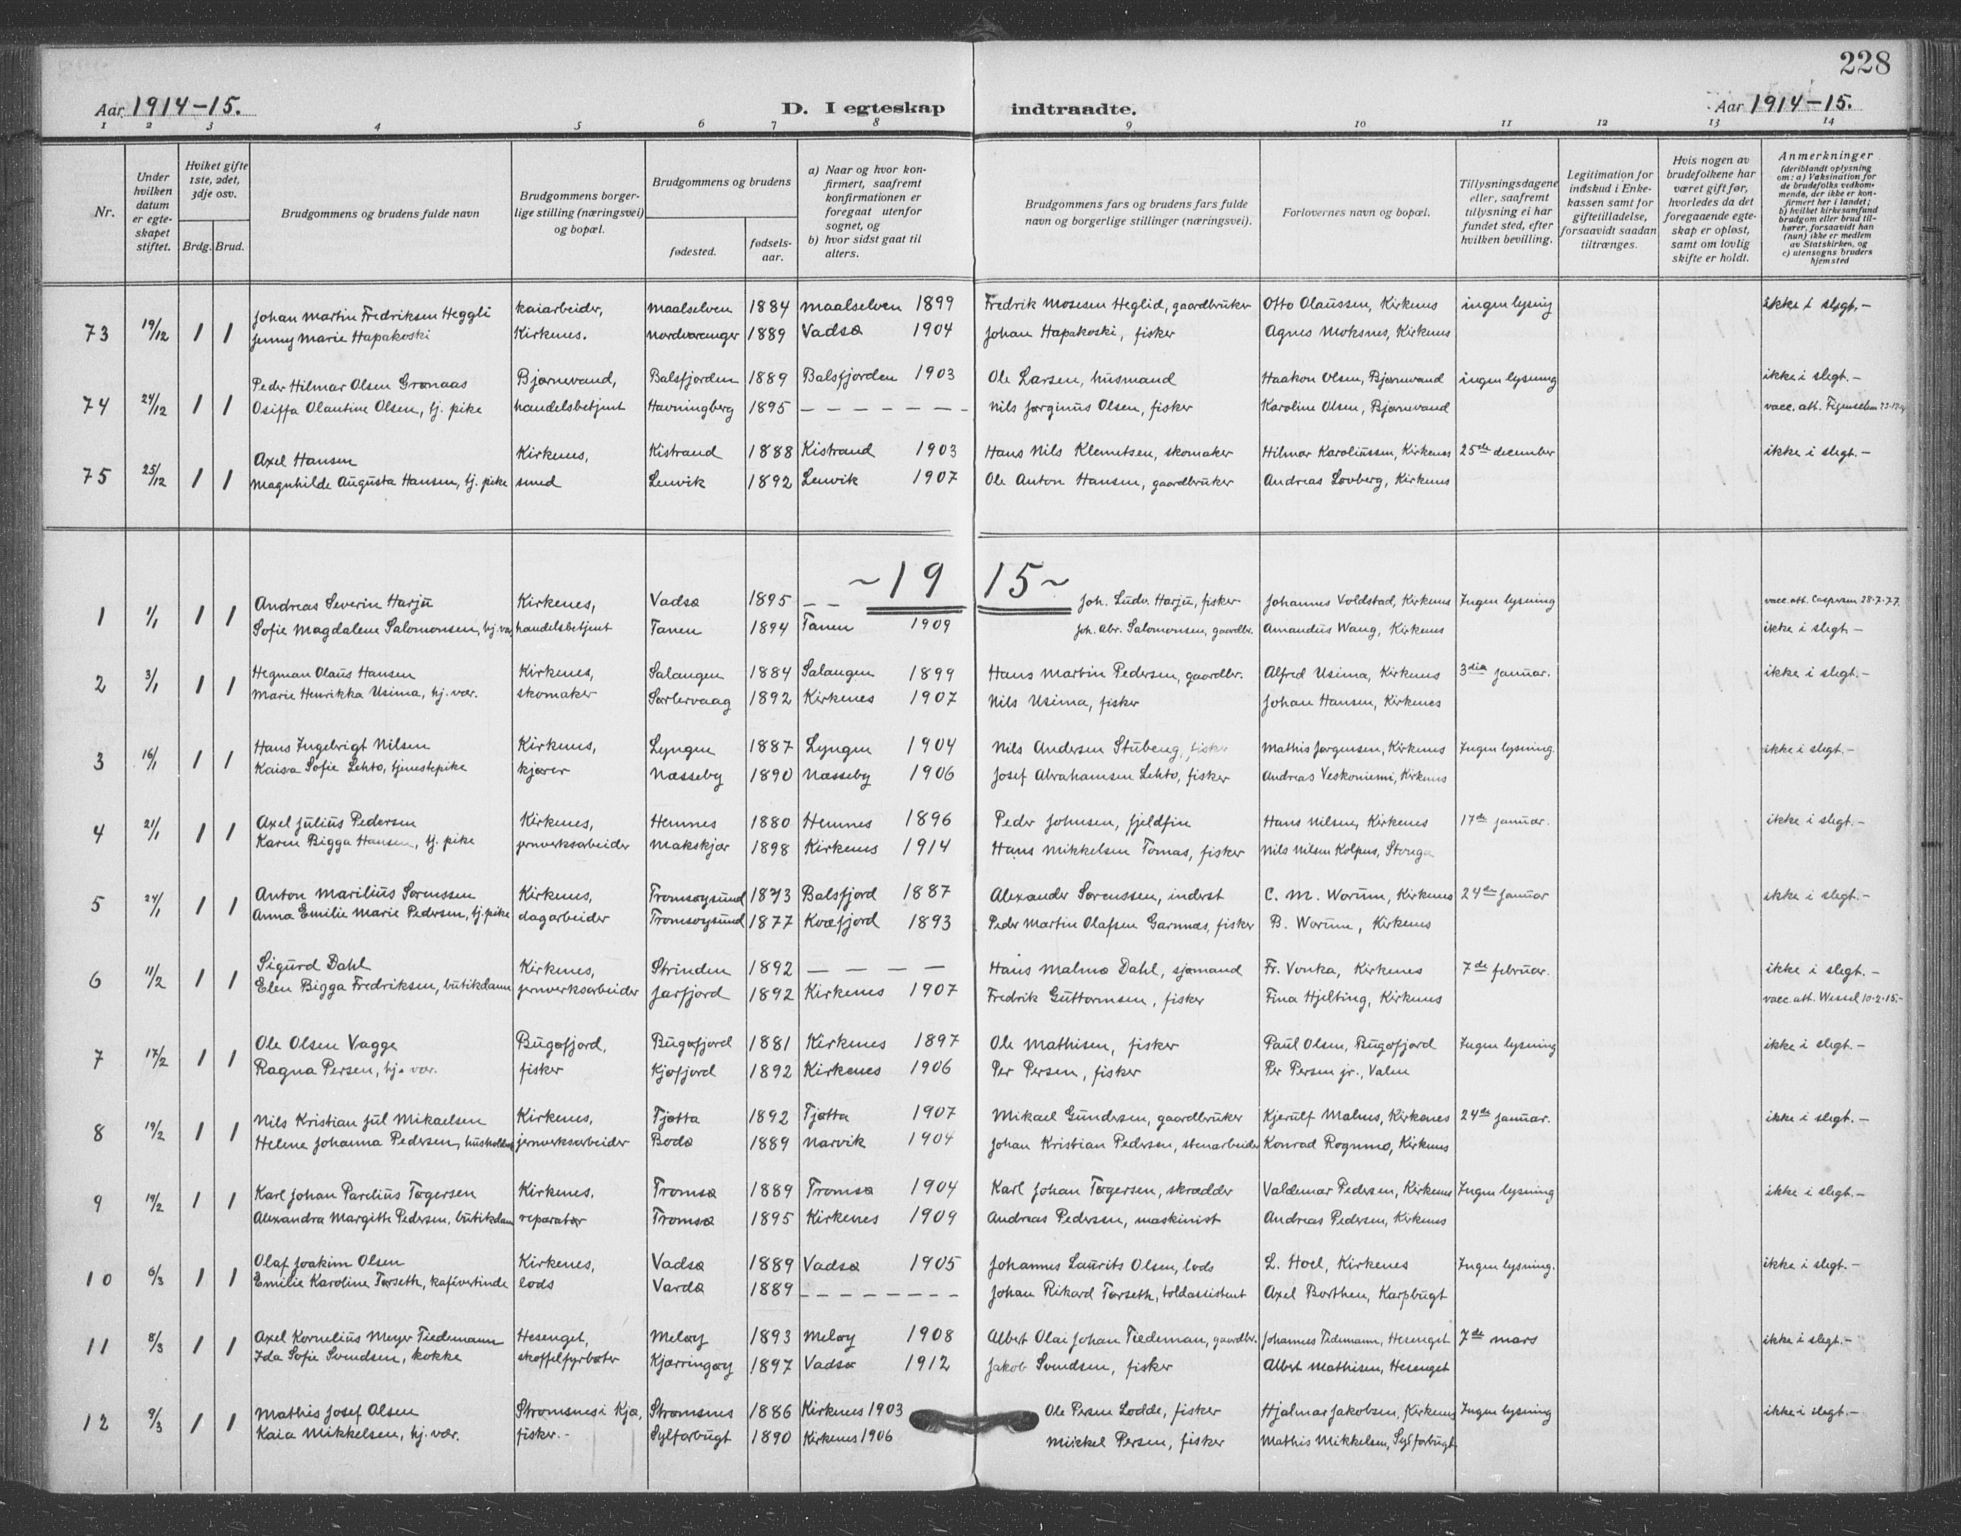 228
Aar 1914-15. D. I egteskap indtraadte. Aar 1914-15.
1 2 3 4 5 6 7 8 9 10 11 12 13 14
Nr.
Under hvilken datum er egteskapet stiftet.
Hviket gifte 1ste, 2det, 3dje osv.
Brdg. Brud.
Brudgommens og brudens fulde navn
Brudgommens borgerlige stilling (næringsvei) og bopæl.
Brudgommens og brudens
fødested. fødselsaar.
a) Naar og hvor konfirmert, saafremt konfirmationen er foregaat utenfor sognet, og
b) hvor sidst gaat til alters.
Brudgommens fars og brudens fars fulde navn og borgerlige stillinger (næringsvei).
Forlovernes navn og bopæl.
Tillysningsdagene eller, saafremt tillysning ei har fundet sted, efter hvilken bevilling.
Legitimation for indskud i Enkekassen samt for giftetilladelse, forsaavidt saadan tiltrænges.
Hvis nogen av brudefolkene har været gift før, hvorledes da det foregaaende egteskap er opløst, samt om lovlig skifte er holdt.
Anmerkninger (deriblandt oplysning om: a) Vaksination for de brudefolks vedkommende, der ikke er konfirmert her i landet; b) hvilket kirkesamfund brudgom eller brud tilhører, forsaavidt han (hun) ikke er medlem av Statskirken, og c) utensogns bruders hjemsted
73 19/12 1 1 Johan Martin Fredriksen Heggli kaiarbeider, Maalselven 1884 Maalselven 1899 Fredrik Mosesen Heglid, gaardbruker Otto Olaussen, Kirkenes ingen lysning ikke i slegt.-
Jenny Marie Hapakoski Kirkenes. Nordvaranger 1889 Vadsø 1904 Johan Hapakoski, fisker Agnes Moksnes, Kirkenes
74 24/12 1 1 Peder Hilmar Olsen Grønaas Bjørnevand, Balsfjorden 1889 Balsfjorden 1903 Ole Larsen, husmand Haakon Olsen, Bjørnevand ingen lysning ikke i slegt.-
Osiffa Olautine Olsen, tj. pike handelsbetjent Havningberg 1895 - - - - - - - Nils Jørginus Olsen, fisker Karoline Olsen, Bjørnevand vacc. att.
75 25/12 1 1 Axel Hansen Kirkenes, Kistrand 1888 Kistrand 1903 Hans Nils Klemetsen, skomaker Hilmar Karoliussen, Kirkenes 25de december ikke i slegt.-
Magnhilde Augusta Hansen, tj. pike smed Lenvik 1892 Lenvik 1907 Ole Anton Hansen, gaardbruker Andreas Lovberg, Kirkenes
~19 15~
1 1/1 1 1 Andreas Severin Harju Kirkenes, Vadsø 1895 - - Joh. Ludv. Harju, fisker Johannes Voldstad, Kirkenes Ingen lysning vacc. att. 28-7-77.
Sofie Magdalene Salomonsen, hj. væ handelsbetjent Tanen 1894 Tanen 1909 Joh. Abr. Salomonsen, gaardbr. Amandus Wang, Kirkenes ikke i slegt.-
2 3/1 1 1 Hegman Olaus Hansen Kirkenes, Salangen 1884 Salangen 1899 Hans Martin Pedersen, gaardbr. Alfred Usima, Kirkenes 3dia januar. ikke i slegt.-
Marie Henrikka Usima, hj. vær. skomaker Sørlervaag 1892 Kirkenes 1907 Nils Usima, fisker Johan Hansen, Kirkenes
3 16/1 1 1 Hans Ingebrigt Nilsen Kirkenes, Lyngen 1887 Lyngen 1904 Nils Andersen Stubeng, fisker Mathis Jørgensen, Kirkenes Ingen lysning. ikke i slegt.-
Kaisa Sofie Lehto, tjenestepike kjører Næsseby 1890 Næsseby 1906 Josef Abrahamsen Lehto, fisker Andreas Veskoniemi, Kirkenes
4 21/1 1 1 Axel Julius Pedersen Kirkenes, Hemnes 1880 Hemnes 1896 Peder Johnsen, fjeldfin Hans Nilsen, Kirkenes 17de januar. ikke i slegt.-
Karen Bigga Hansen, tj. pike jernverksarbeider Makskjær 1898 Kirkenes 1914 Hans Mikkelsen Tomas, fisker Nils Nilsen Kolpus,
5 24/1 1 1 Anton Marilius Sørenssen Kirkenes, Tromsøysund 1873 Balsfjord 1887 Alexander Sørenssen, inderst C. M. Worum, Kirkenes 24de januar ikke i slegt.-
Anna Emilie Marie Pedersen, tj. pike dagarbeider Tromsøysund 1877 Kvæfjord 1893 Peder Martin Olafsen Garnnes, fisker B. Worum, Kirkenes
6 11/2 1 1 Sigurd Dahl Kirkenes, Strinden 1892 - - - - Hans Malmø Dahl, sjømand Fr. Vonka, Kirkenes 7de februar. ikke i slegt.-
Elen Bigga Fredriksen, butikdame jernverksarbeider Jarfjord 1892 Kirkenes 1907 Fredrik Guttormsen, fisker Fina Hjelting, Kirkenes vacc. att. Wessel 10-2-15.-
7 17/2 1 1 Ole Olsen Vagge Bugøfjord, Bugøfjord 1881 Kirkenes 1897 Ole Mathisen, fisker Paul Olsen, Bugøfjord Ingen lysning ikke i slegt.-
Ragna Persen, hj. vær. fisker Kjøfjord 1892 Kirkenes 1906 Per Persen, fisker Per Persen jr., Valen
8 19/2 1 1 Nils Kristian Jul Mikaelsen Kirkenes, Tjøtta 1892 Tjøtta 1907 Mikael Gundersen, gaardbruker Kjerulf Malnes, Kirkenes 24de januar. ikke i slegt.-
Helene Johanna Pedersen, husholder jernverksarbeider Bodø 1889 Narvik 1904 Johan Kristian Pedersen, stenarbeider Konrad Rognmo, Kirkenes
9 19/2 1 1 Karl Johan Parelius Tøgersen Kirkenes, Tromsø 1889 Tromsø 1904 Karl Johan Tøgersen, skrædder Valdemar Pedersen, Kirkenes Ingen lysning ikke i slegt.-
Alexandra Margithe Pedersen, butikdam reparatør Tromsø 1895 Kirkenes 1909 Andreas Pedersen, maskinist Andreas Pedersen, Kirkenes
10 6/3 1 1 Olaf Joakim Olsen Kirkenes, Vadsø 1889 Vadsø 1905 Johannes Laurits Olsen, lods L. Hoel, Kirkenes Ingen lysning. ikke i slegt.-
Emilie Karoline Tørseth, kafévertinde lods Vardø 1889 - - - - - - - - Johan Rikard Tørseth, toldassistent Axel Borthen, Karpbugt
11 8/3 1 1 Axel Kornelius Meyer Tiedemann Hesenget, Meløy 1893 Meløy 1908 Albert Olai Johan Tiedeman, gaardbr. Johannes Tidemann, Hesenget 7de mars ikke i slegt.-
Ida Sofie Svendsen, kokke skoffelfyrbøter Kjærringøy 1897 Vadsø 1912 Jakob Svendsen, fisker Albert Mathisen, Hesenget
12 9/3 1 1 Mathis Josef Olsen Strømsnes i Kjø, Strømsnes 1886 Kirkenes 1903 Ole Persen Lodde, fisker Hjalmar Jakobsen, Kirkenes Ingen lysning ikke i slegt.-
Kaia Mikkelsen, hj. vær. fisker.- Sylforbugt 1890 Kirkenes 1906 Mikkel Persen, fisker Mathis Mikkelsen, Sylforbugt